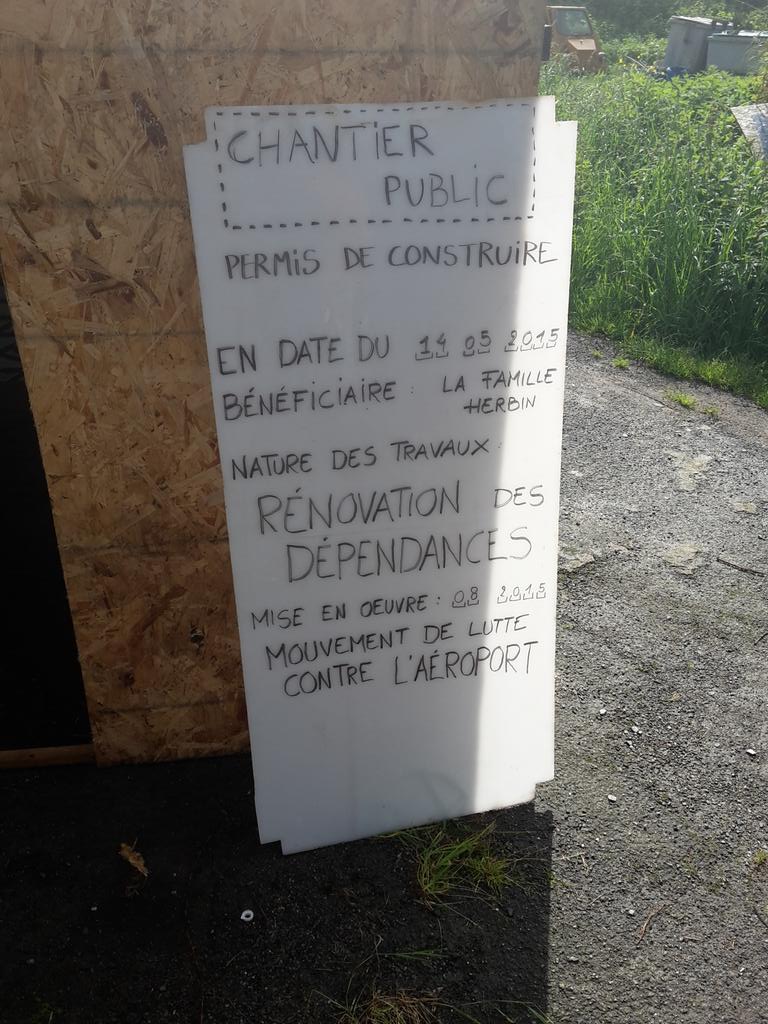 CHANTIER
PUBLIC
PERMIS DE CONSTRUIRE
EN DATE DU 14 05 2015
BÉNÉFICIAIRE : LA FAMILLE
HERBIN
NATURE DES TRAVAUX :
RÉNOVATION DES
DÉPENDANCES
MISE EN OEUVRE : 08 2015
MOUVEMENT DE LUTTE
CONTRE L'AÉROPORT